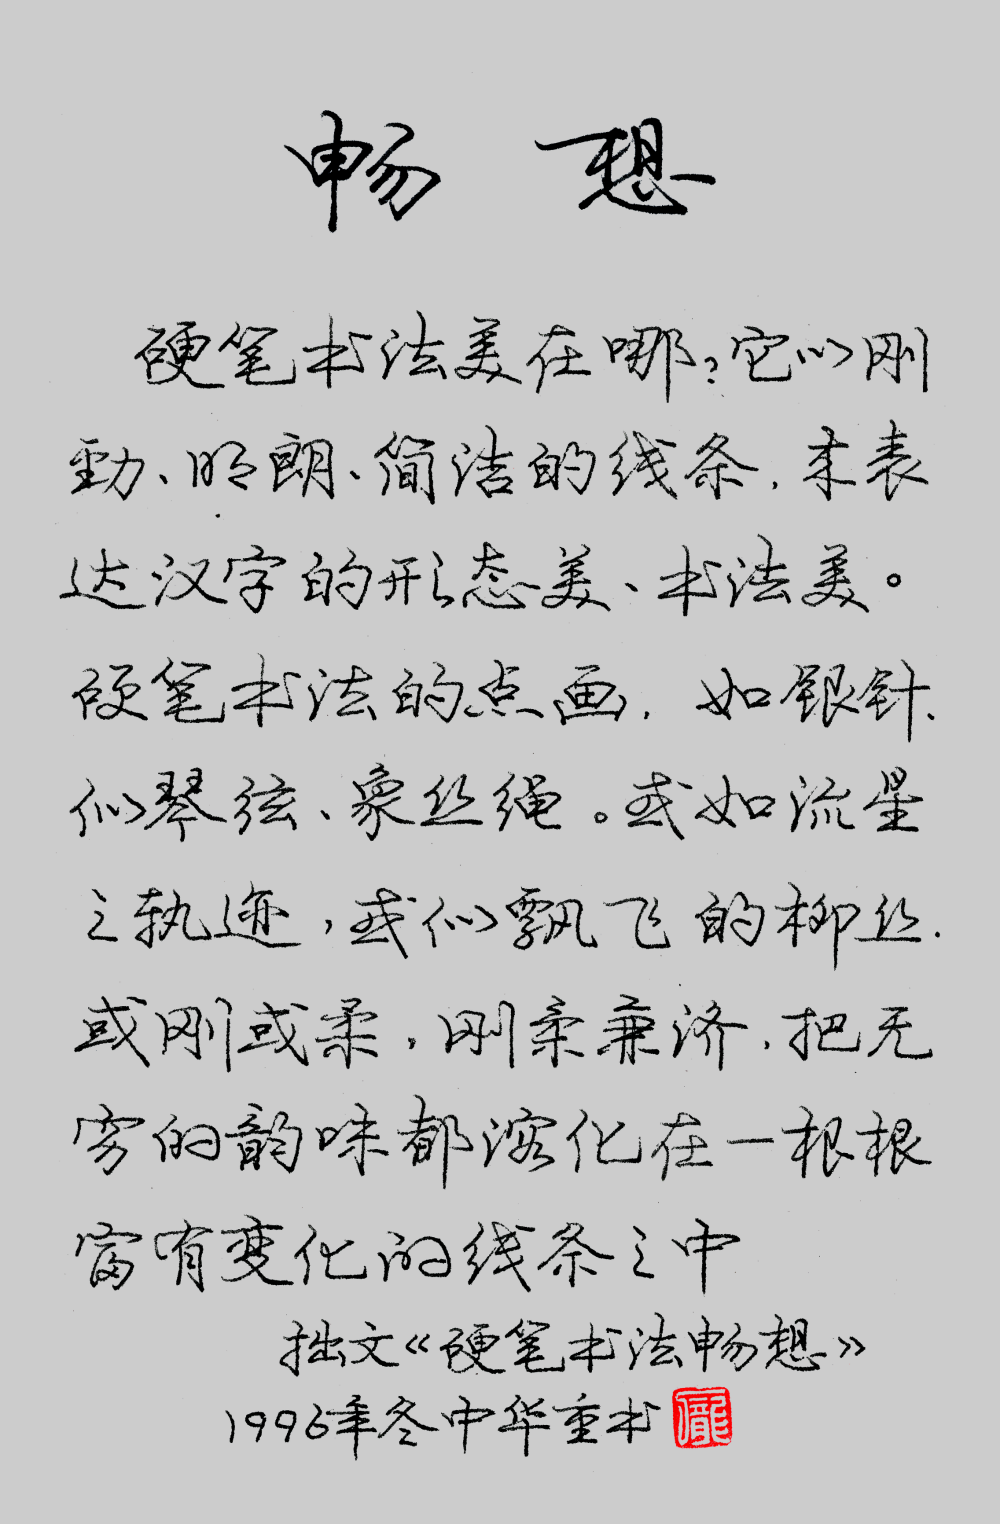 畅 想
硬笔书法美在哪?它以刚
劲、明朗、简洁的线条,来表
达汉字的形态美、书法美。
硬笔书法的点画,如银针、
似琴弦、象丝绳。或如流星
之轨迹,或似飘飞的柳丝.
或刚或柔,刚柔兼济,把无
穷的韵味都溶化在一根根
富有变化的线条之中
拙文《硬笔书法畅想》
1996年冬中华重书